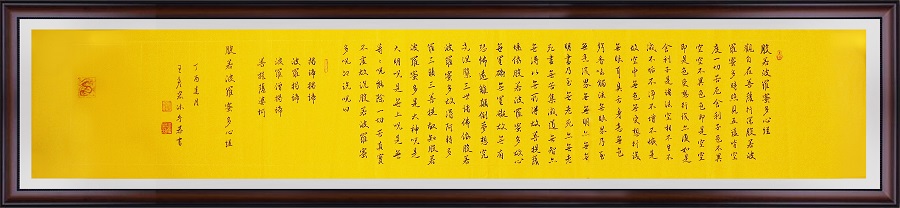 般若波羅蜜多心經
觀自在菩薩行深般若波
羅蜜多時照見五蘊皆空
度一切苦厄舍利子色不異
空空不異色色即是空空
即是色受想行識亦復如是
舍利子是諸法空相不生不
滅不垢不淨不增不減是
故空中無色無受想行識
無眼耳鼻舌身意無色
聲香味觸法無眼界乃至
無意識界無無明亦無無
明盡乃至無老死亦無老
死盡無苦集滅道無智亦
無得以無所得故菩提薩
埵依般若波羅蜜多故心
無罣礙無罣礙故無有
恐怖遠離顛倒夢想究
竟涅槃三世諸佛依般若
波羅蜜多故得阿耨多
羅三藐三菩提故知般若
波羅蜜多是大神咒是
大明咒是無上咒是無
等等咒能除一切苦真實
不虛故說般若波羅蜜
多咒即說咒曰
揭諦揭諦
波羅揭諦
波羅僧揭諦
菩提薩婆訶
般若波羅蜜多心經
丁酉蓮月
沐手恭書